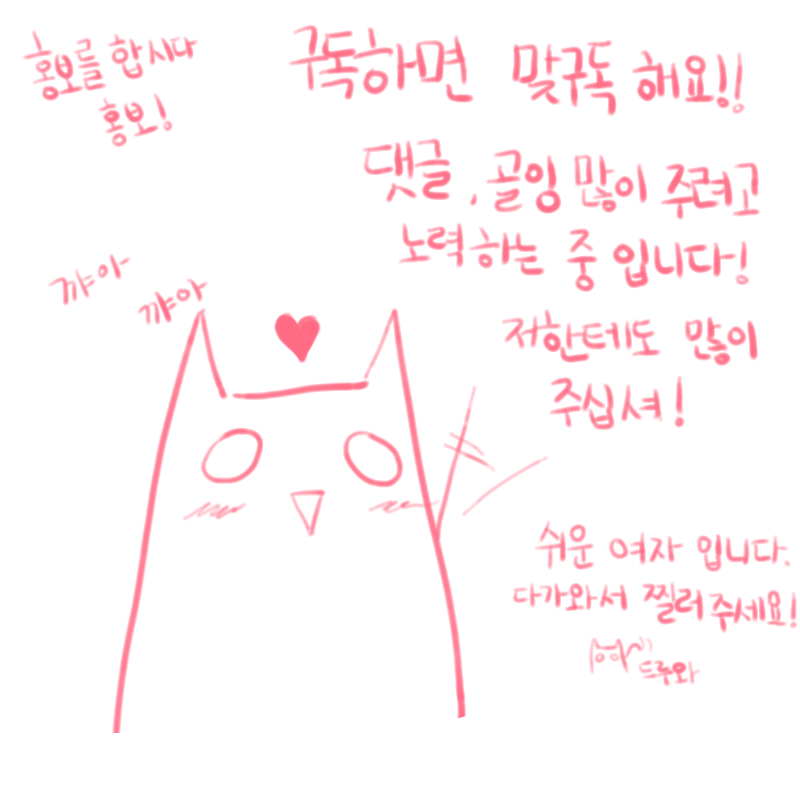 홍보를 합시다
홍보!
구독하면 맞구독 해요!!
댓글, 골잉 많이 주려고
노력하는 중 입니다!
저한테도 많이
주십셔!
꺄아
꺄아
쉬운 여자 입니다.
다가와서 찔러주세요!
드루와